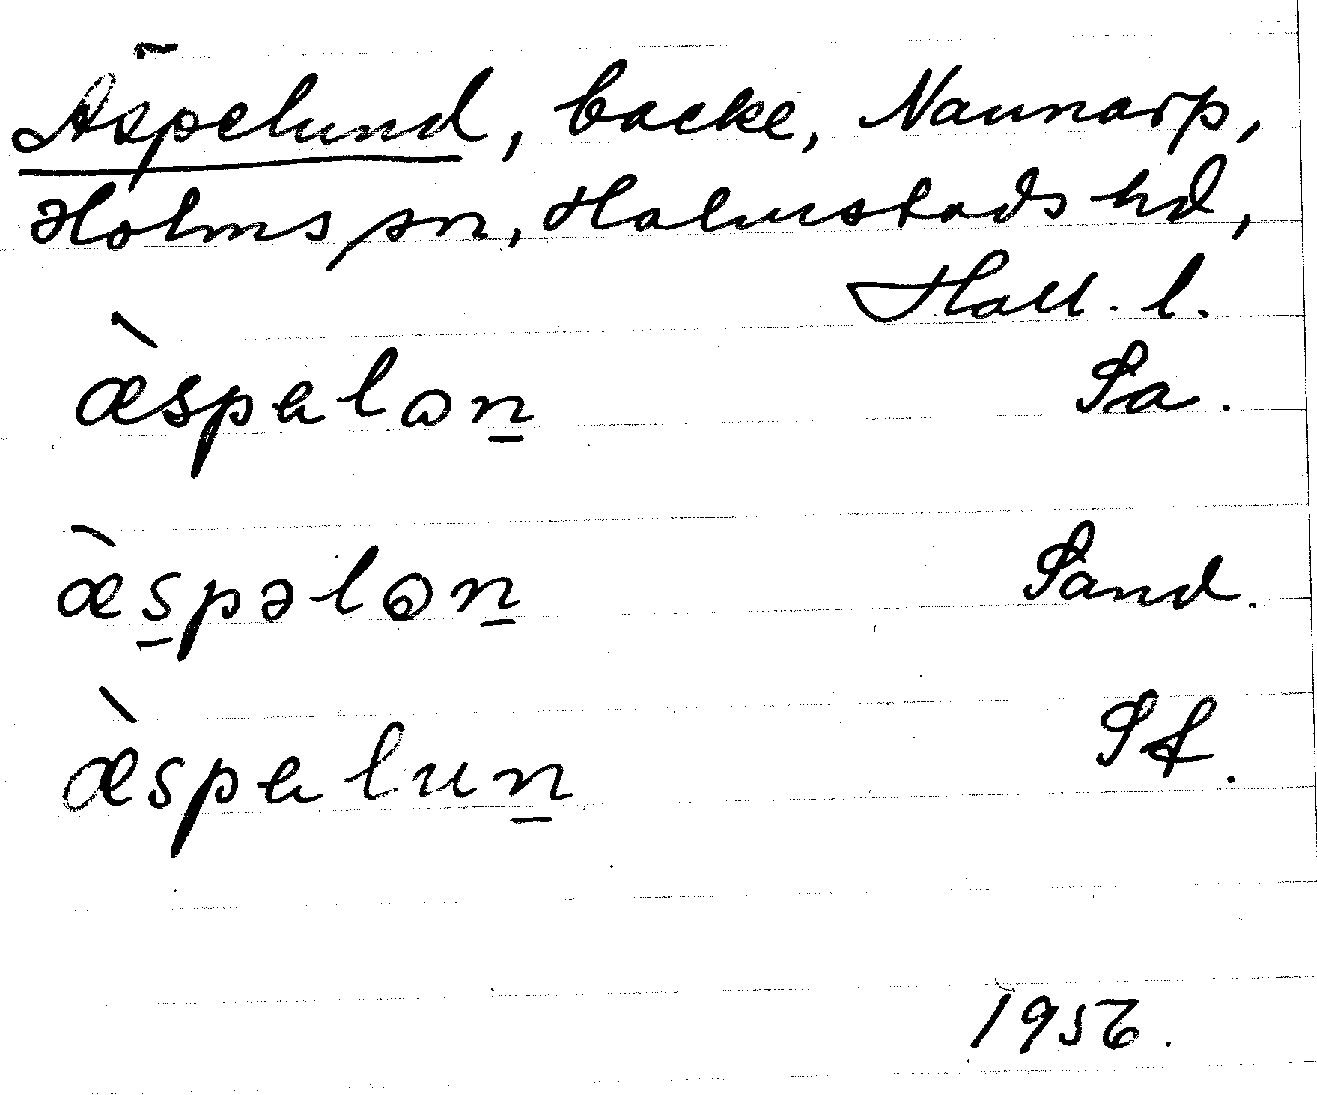 Äspelund, backe, Nannarp,
Holms sn, Halmstads hd,
Hall. l.
æ̀spalon̲ Sa.
æ̀s̲pəlɷn̲ Sand.
æ̀spalun̲ Sf.
1956.